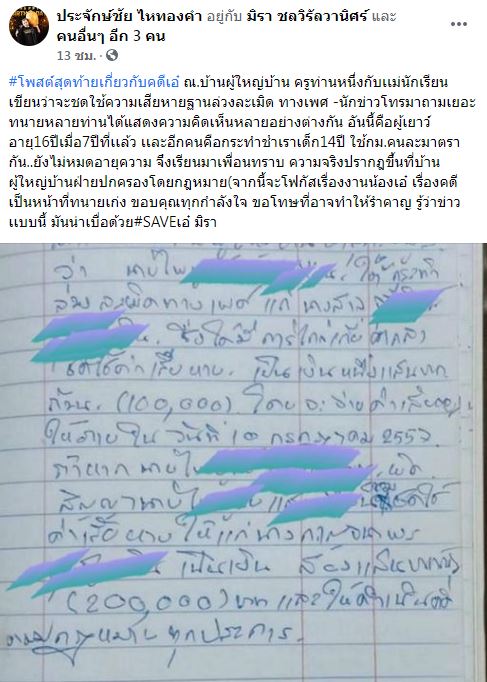 ประจักษ์ชัย ไหทองคำ อยู่กับ มิรา ชลวิรัลวานิศร์ และ
คนอื่นๆ อีก 3 คน
13 ชม. ·
#โพสต์สุดท้ายเกี่ยวกับคดีเอ๋ ณ.บ้านผู้ใหญ่บ้าน ครูท่านหนึ่งกับแม่นักเรียน
เขียนว่าจะชดใช้ความเสียหายฐานล่วงละเมิด ทางเพศ -นักข่าวโทรมาถามเยอะ
ทนายหลายท่านได้แสดงความคิดเห็นหลายอย่างต่างกัน อันนี้คือผู้เยาว์
อายุ16ปีเมื่อ7ปีที่แล้ว และอีกคนคือกระทำชำเราเด็ก14ปี ใช้กม.คนละมาตรา
กัน..ยังไม่หมดอายุความ จึงเรียนมาเพื่อนทราบ ความจริงปรากฎขึ้นที่บ้าน
ผู้ใหญ่บ้านฝ่ายปกครองโดยกฎหมาย(จากนี้จะโฟกัสเรื่องงานน้องเอ๋ เรื่องคดี
เป็นหน้าที่ทนายเก่ง ขอบคุณทุกกำลังใจ ขอโทษที่อาจทำให้รำคาญ รู้ว่าข่าว
แบบนี้ มันน่าเบื่อด้วย#SAVEเอ๋ มิรา
ว่า นาย ได้กระทำ
ล่วงละเมิดทางเพศ แก่ นางสาว
ซึ่งได้มีการไกล่เกลี่ย
ค่าเสียหาย. เป็นเงินหนึ่งแสนบาท
ถ้วน. (100,000) โดยจะจ่ายค่าเสียหาย
ให้ภายใน วันที่ 10 กรกฎาคม 255
ถ้าหาก นาย ผิด
สัญญา นาย
ค่าเสียหาย ให้แก่ นางสาว
เป็นเงิน สองแสนบาท
(200,000) บาท และให้ดำเนินคดี
ตามกฎหมายทุกประการ.